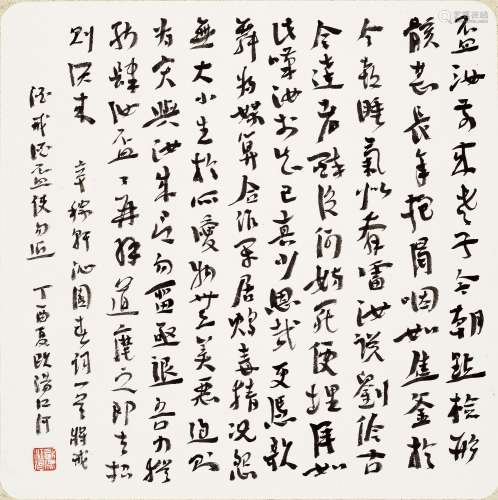 盃汝前来老子今朝點檢形
骸甚長年抱渴咽如焦釜於
今喜睡氣似奔雷汝說劉伶古
今達者醉後何妨死便埋渾如
此嘆汝於知己真少恩哉更憑歌
舞為媒算合作平居鴆毒猜况怨
無大小生於所愛物無美惡過則
為灾與汝成言勿留亟退吾力猶
肆汝盃々再拜道麾之即去招
則須来 辛稼軒沁園春詞一首將戒
酒戒酒盃使勿近 丁酉夏歐陽江河